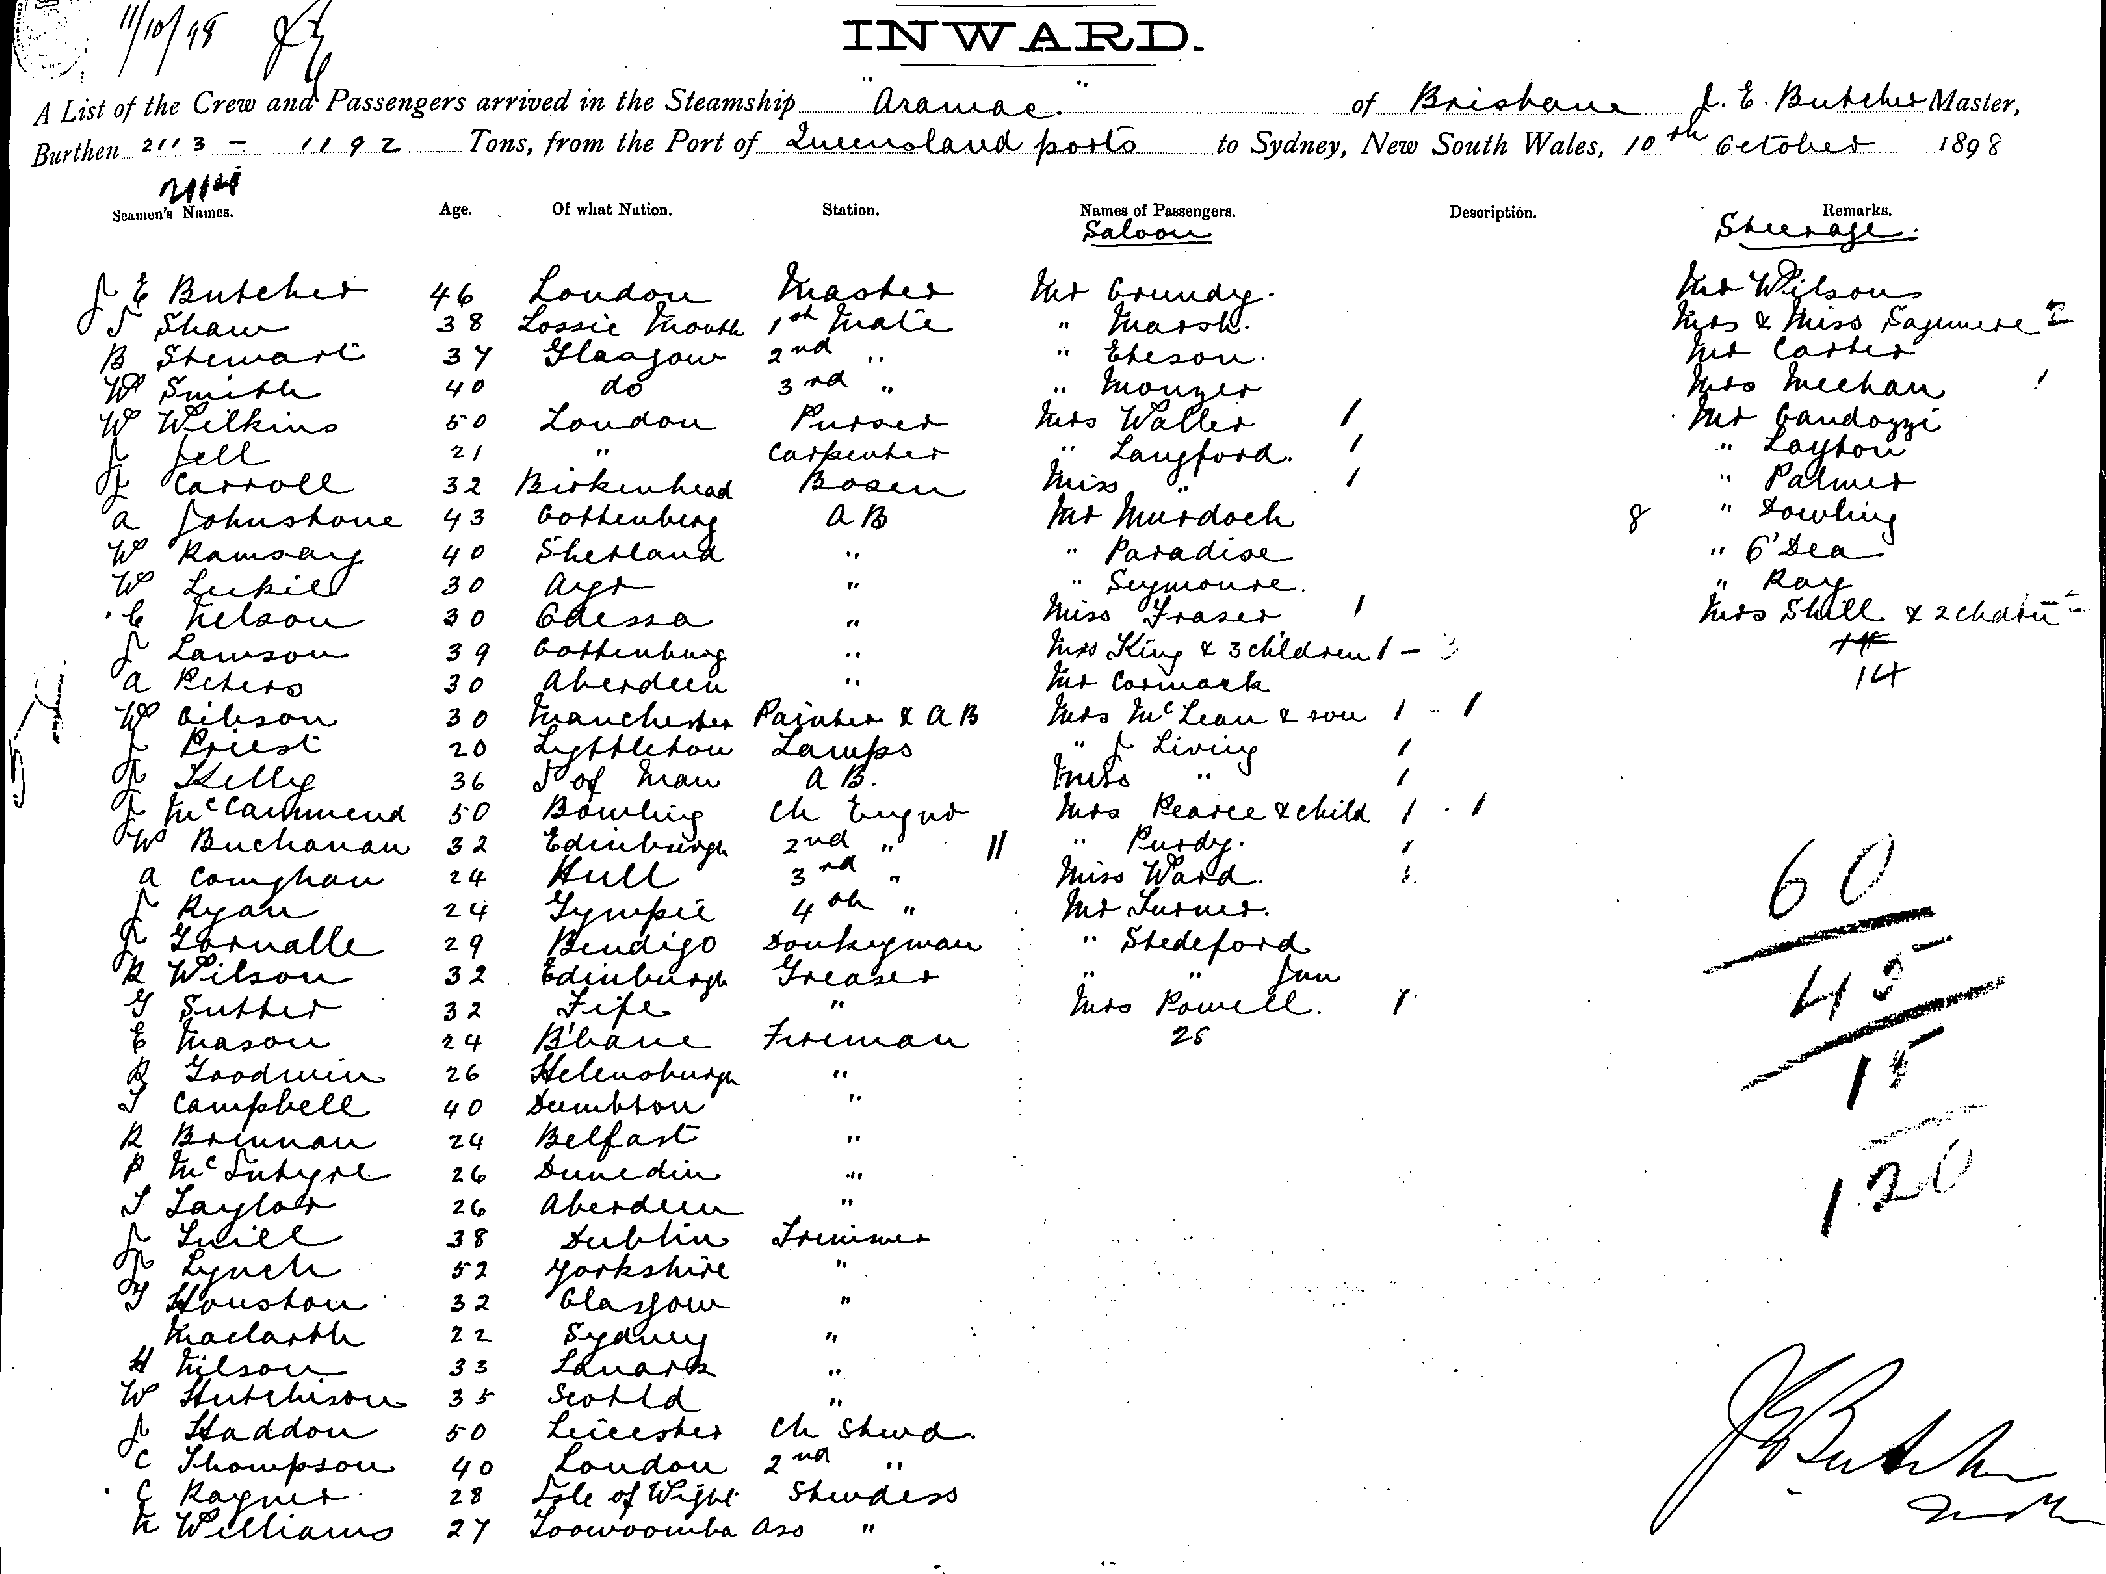 11/10/98
INWARD.
A List of the Crew and Passengers arrived in the Steamship "Aramac." of Brisbane J. E. Butcher Master,
Burthen 2113 – 1192 Tons, from the Port of Queensland ports to Sydney, New South Wales, 10th October 1898
Seamen's Names. Age. Of what Nation. Station. Names of Passengers. Description. Remarks.
Saloon Steerage.
J E Butcher 46 London Master Mr Grundy. Mr Wilson
T Shaw 38 Lossie Mouth 1st Mate " Marsh. Mrs & Miss
B Stewart 37 Glasgow 2nd " " Eteson. Mr Carter
W Smith 40 do 3rd " " Monzer Mrs Meehan 1
W Wilkins 50 London Purser Mrs Waller 1 Mr Gandozzi
J Jell 21 " Carpenter " Langford. 1 " Layton
J Carroll 32 Birkenhead Bosen Miss " 1 " Palmer
A Johnstone 43 Gottenberg A B Mr Murdoch 8 " Dowling
W Ramsay 40 Shetland " " Paradise " O'Dea
W Luckie 30 Ayr " " Seymoure. " Ray
C Nelson 30 Odessa " Miss Fraser 1 Mrs Skill & 2 chdrn
J Lawson 39 Gottenburg " Mrs King & 3 children 1 – 3
A Peters 30 Aberdeen " Mr Cormack 14
W Gibson 30 Manchester Painter & A B Mrs McLean & son 1 - 1
J Priest 20 Lyttleton Lamps " J Living 1
J Kelly 36 I of Man A B. Miss " 1
J McCammend 50 Bowling Ch Engnr Mrs Pearce & child 1 - 1
W Buchanan 32 Edinburgh 2nd " 11 " Purdy. 1
A Conghan 24 Hull 3rd " Miss Ward. 1
J Ryan 24 Gympie 4th " Mr Turner.
J Gornalle 29 Bendigo Donkeyman " Stedeford
R Wilson 32 Edinburgh Greaser " " Jun
G Sutter 32 Fife " Mrs Powell. 1
E Mason 24 B'bane Fireman 28
R Goodwin 26 Helensburgh "
T Campbell 40 Dumbton "
R Brennan 24 Belfast "
P McIntyre 26 Dunedin "
T Taylor 26 Aberdeen "
J Quill 38 Dublin Trimmer
J Lynch 52 Yorkshire "
T Houston 32 Glasgow "
Maclarth 22 Sydney "
H Nilson 33 Lanark "
W Hutchison 35 Scotld "
J Haddon 50 Leicester Ch Stewd.
C Thompson 40 London 2nd "
C Rayner 28 Isle of Wight Stewdess
K Williams 27 Toowoomba Ass "
60
45
15
120
J E Butcher